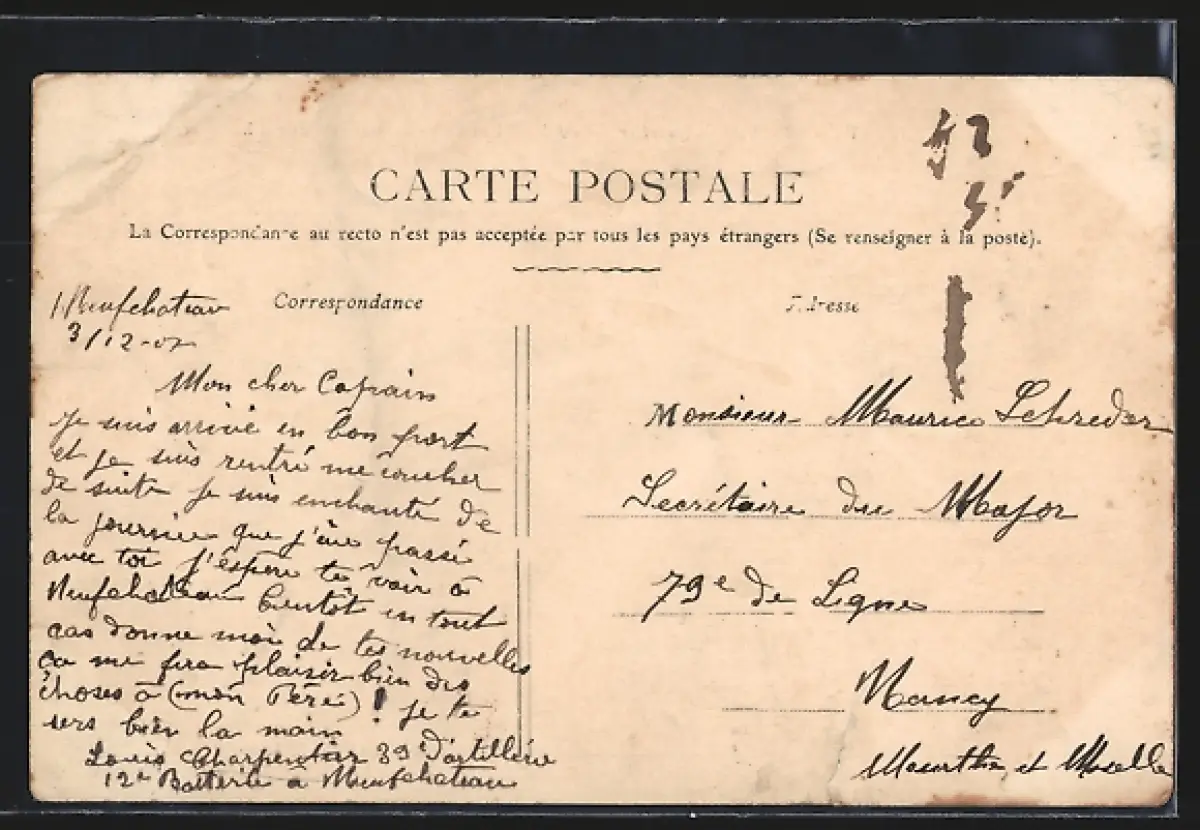 CARTE POSTALE
La Correspondance au recto n'est pas acceptée par tous les pays étrangers (Se renseigner à la poste).
Correspondance
Adresse
Neufchateau
3/12-07
Mon cher Copain
Je suis arrivé en bon port
et je suis rentré me coucher
de suite je suis enchanté de
la journée que j'ai passé
avec toi j'espère te voir à
Neufchateau bientôt en tout
cas donne moi de tes nouvelles
ça me fera plaisir bien des
choses à (mon Père) ! je te
sers bien la main
Louis Charpentier 39e d'artillerie
12e Batterie a Neufchateau
Monsieur Maurice Schreder
Secrétaire du Major
79e de Ligne
Nancy
Meurthe et Moselle